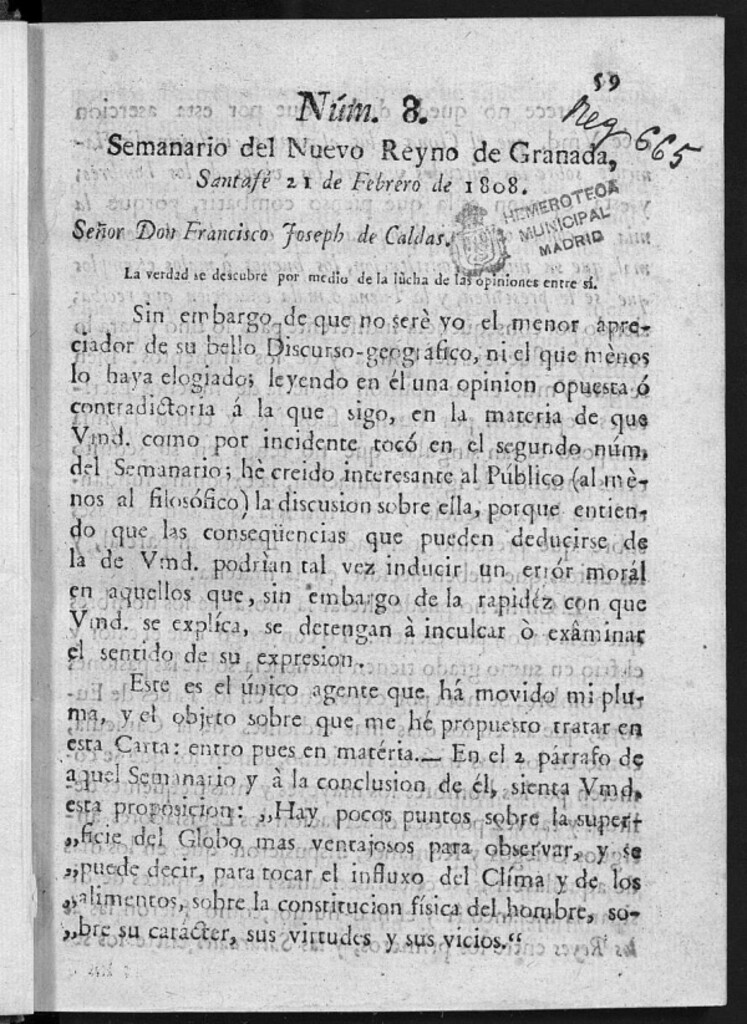 59
Núm. 8.
Reg 665
Semanario del Nuevo Reyno de Granada,
Santafé 21 de Febrero de 1808.
HEMEROTECA
MUNICIPAL
MADRID
Señor Don Francisco Joseph de Caldas.
La verdad se descubre por medio de la lucha de las opiniones entre sí.
Sin embargo de que no serè yo el menor apre-
ciador de su bello Discurso-geográfico, ni el que mènos
lo haya elogiado; leyendo en él una opinion opuesta ó
contradictoria á la que sigo, en la materia de que
Vmd. como por incidente tocó en el segundo núm.
del Semanario; hè creido interesante al Público (al mè-
nos al filosófico) la discusion sobre ella, porque entien-
do que las conseqüencias que pueden deducirse de
la de Vmd. podrìan tal vez inducir un errór morál
en aquellos que, sin embargo de la rapidéz con que
Vmd. se explíca, se detengan à inculcar ò exâminar
el sentido de su expresion.
Este es el único agente que há movido mi plu-
ma, y el objeto sobre que me hé propuesto tratar en
esta Carta: entro pues en matéria.— En el 2 párrafo de
aquel Semanario y à la conclusion de él, sienta Vmd.
esta proposicion: „Hay pocos puntos sobre la super-
„ficie del Globo mas ventajosos para observar, y se
„puede decir, para tocar el influxo del Clíma y de los
„alimentos, sobre la constitucion física del hombre, so-
„bre su carácter, sus virtudes y sus vicios.“